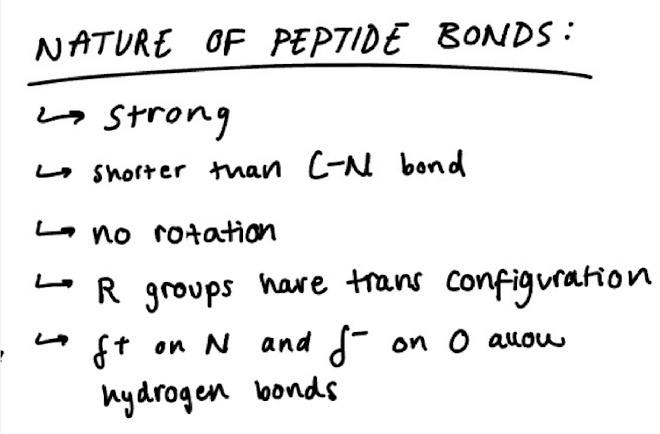 NATURE OF PEPTIDE BONDS:
↳ strong
↳ shorter than C-N bond
↳ no rotation
↳ R groups have trans configuration
↳ δ+ on N and δ- on O allow
hydrogen bonds